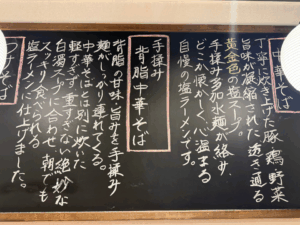 中華そば
丁寧に炊き上げた豚、鶏、野菜
旨味が凝縮された透き通る
黄金色の塩スープ。
手揉み多加水麺が絡み、
どこか懐かしく、心温まる
自慢の塩ラーメンです。
手揉み
背脂中華そば
背脂の甘味と旨みを手揉み
麺がしっかり連れてくる。
中華そばとは別に炊いた
軽すぎず重すぎない絶妙な
白湯スープに合わせ、朝でも
スッキリ食べられる
塩ラーメンに仕上げました。
つけそば